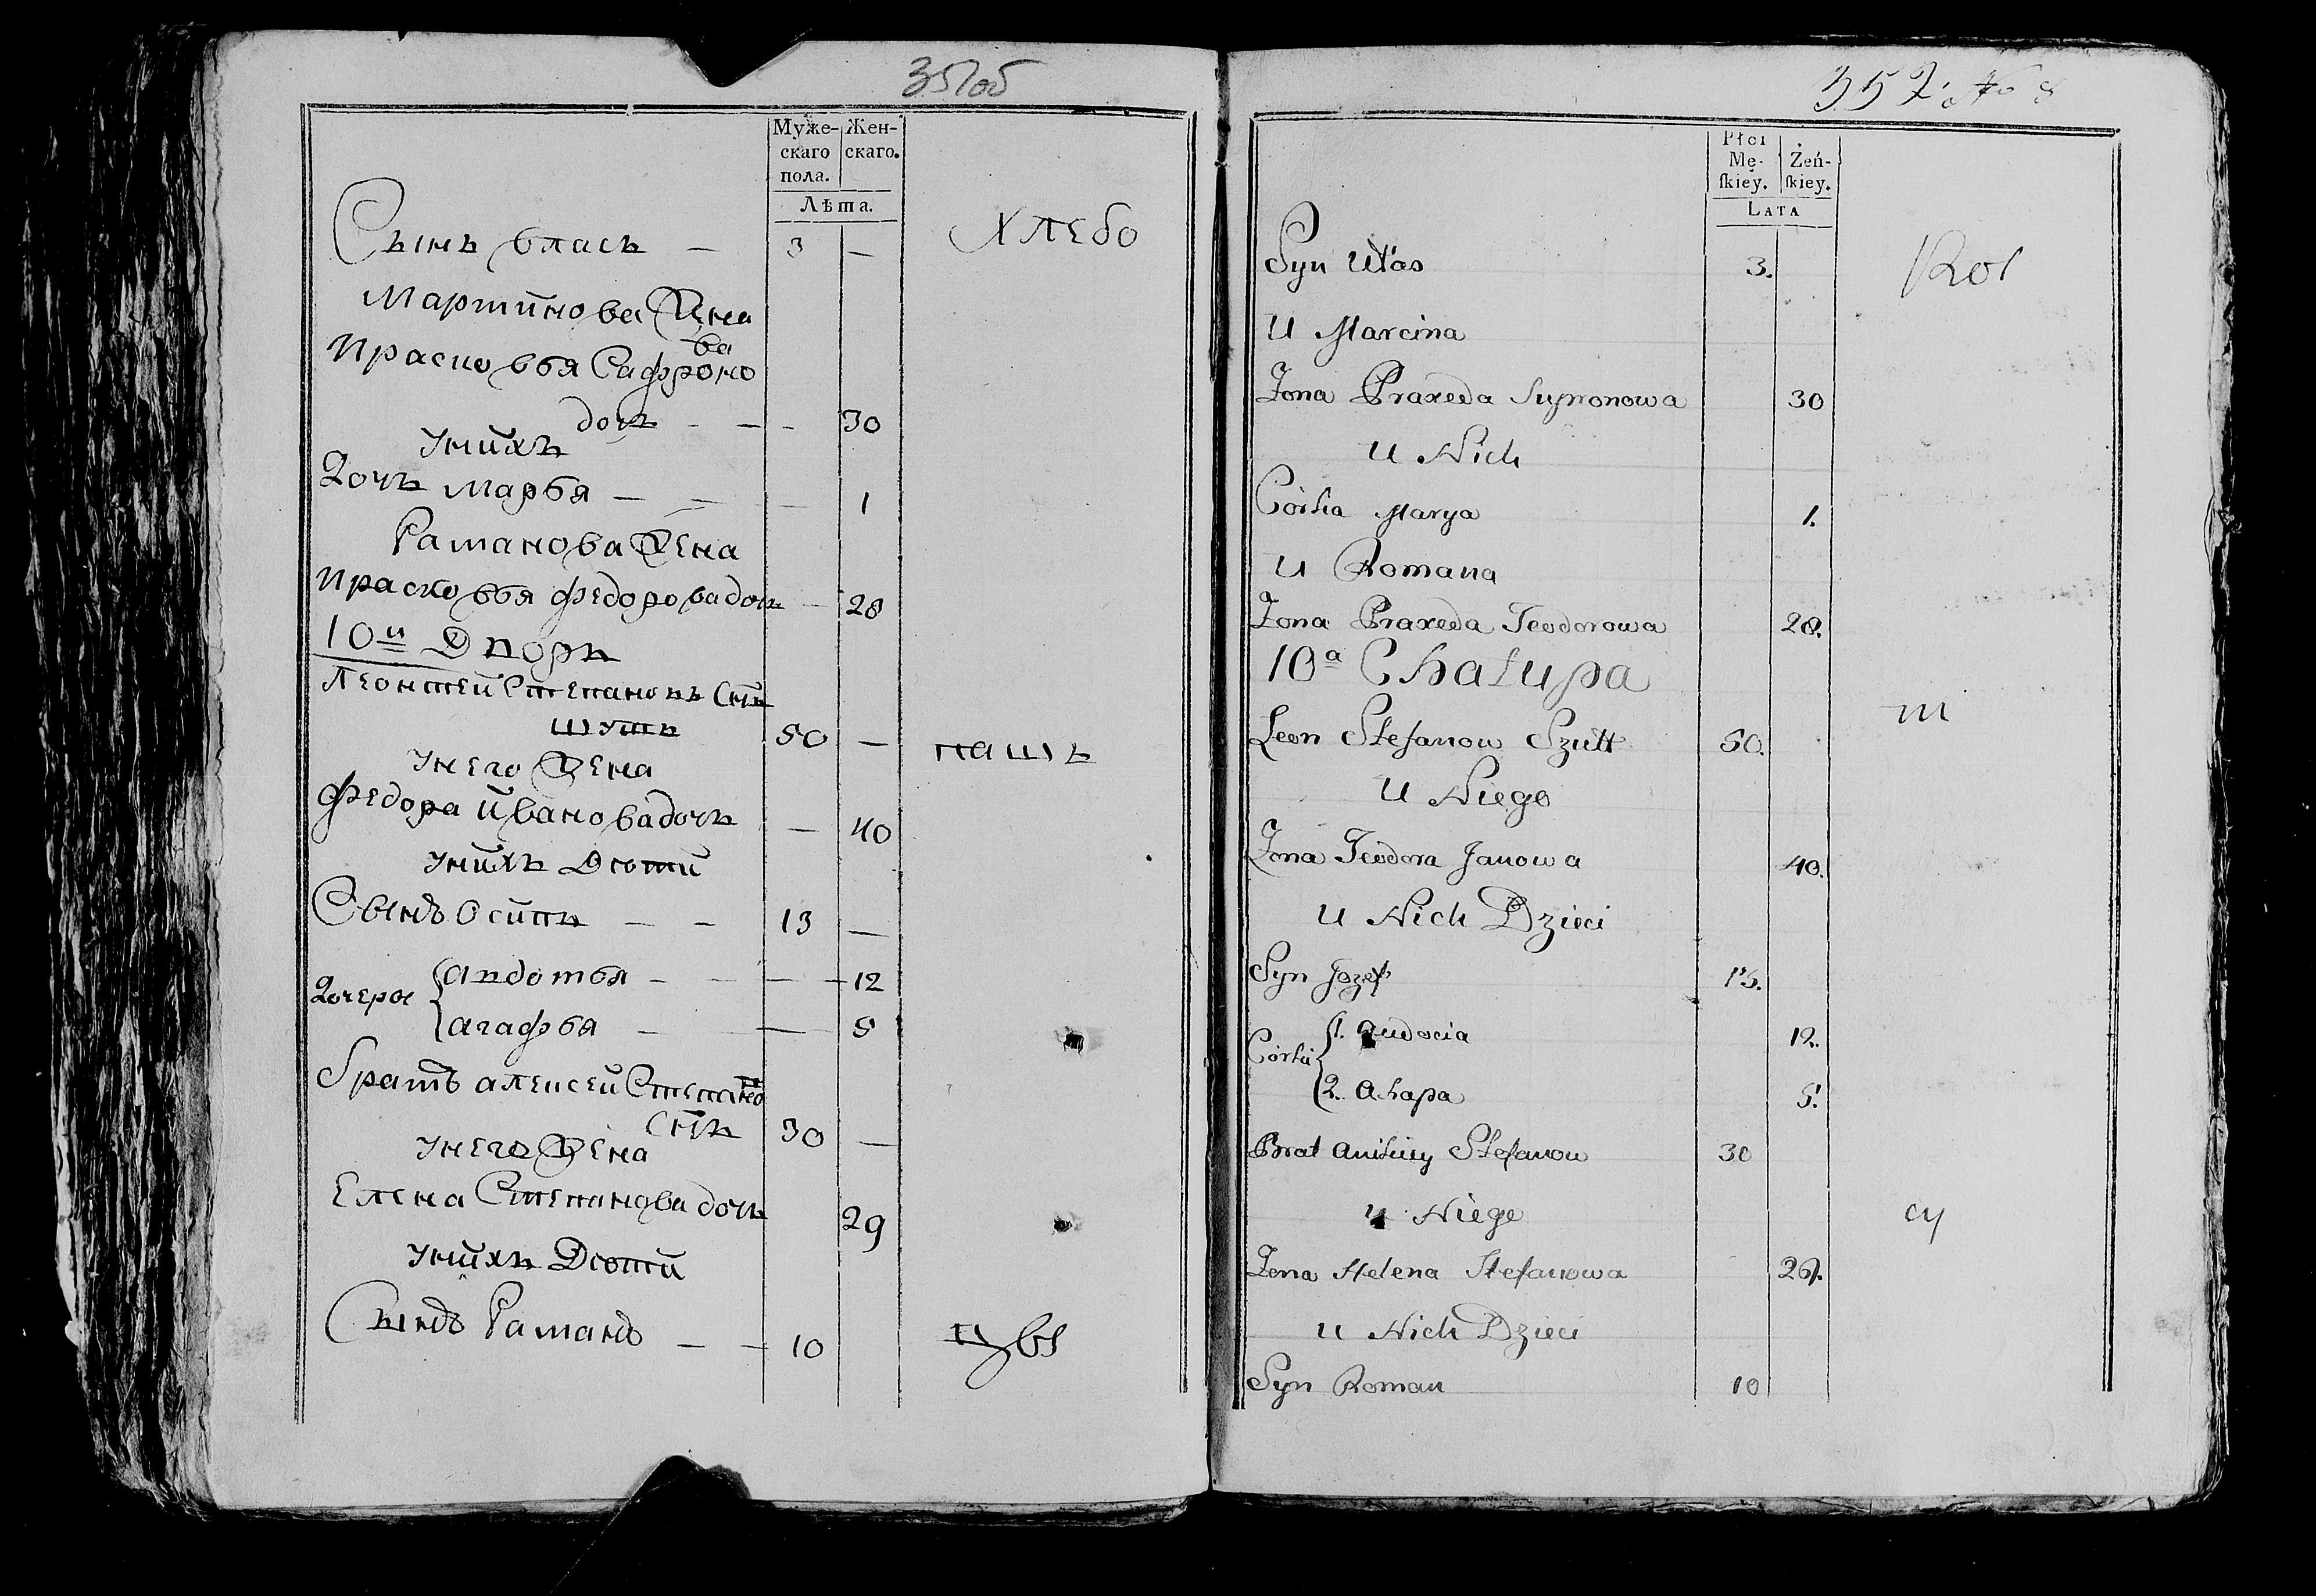 351об
Муже-
скаго
пола.
Жен-
скаго.
Лѣта.
Сынъ власъ — 3 —
хлебо
Мартинова жена
Прасковья Сафроно
ва
дочь - — - 30
Унихъ
Дочь марья — — — 1
Раманова жена
Прасковья Федорова дочь — 28
10й Дворъ
Леонтей Степановъ Снъ
шутъ 50 —
пашъ
Унего жена
Федора йванова дочь — 40
Унихъ Дети
Сынъ Осипъ — — 13 —
Дочери
авдотья — — — 12
агафья — — 5
братъ алексей Степано
въ
Снъ 30 —
Унего жена
Елена Степанова дочь 29
Унихъ Дети
Сынъ Раманъ — — 10
352.
Płci
Mę-
ſkiey.
Żeń-
ſkiey.
LATA
Syn Ułas 3.
U Marcina
Żona Praxeda Supronowa 30
U Nich
Córka Marya 1.
U Romana
Żona Praxeda Teodorowa 28.
10a Chałupa
Leon Stefanow Szutt 50.
U Niego
Żona Teodora Janowa 40.
U Nich Dzieci
Syn Jozef 13.
Córki
1. Audocia 12.
2. Ahapa 5.
Brat Stefanow 30
U Niego
Żona Helena Stefanowa 29.
U Nich Dzieci
Syn Roman 10